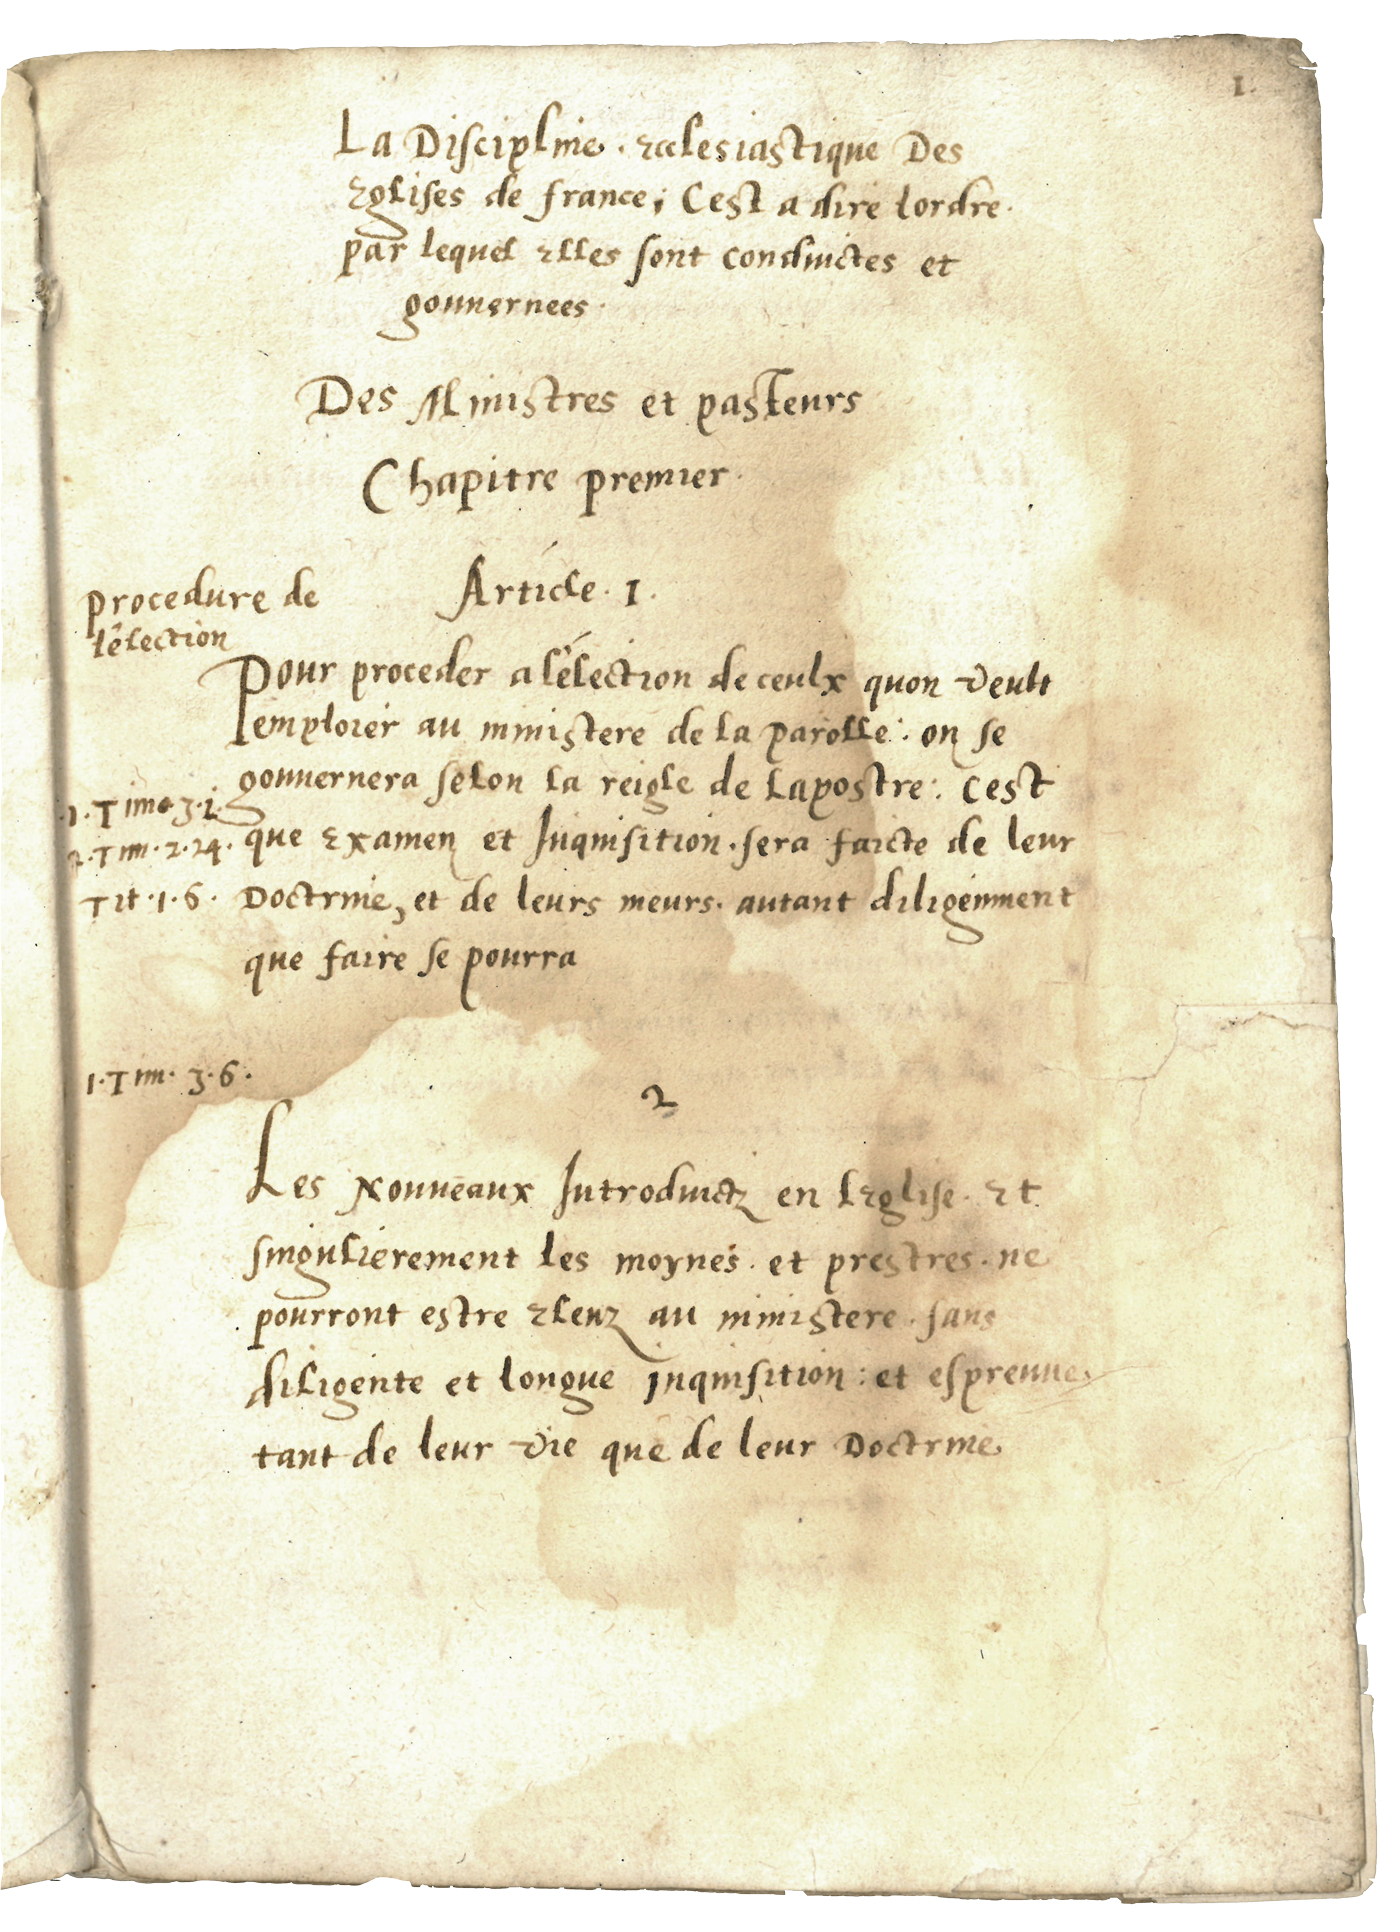 1.
La Discipline. Ecclesiastique Des
Eglises de france; Cest a dire lordre.
par lequel Elles sont conduictes et
gouuernees.
Des Ministres et pasteurs
Chapitre premier.
Article. 1.
procedure de
l'election
Pour proceder a l'election de ceulx quon veult
emploier au ministere de la parolle: on se
gouuernera selon la reigle de Lapostre: Cest
1. Timo. 3. 1.
que Examen et Inquisition. sera faicte de leur
2. Tim. 2. 24.
Doctrine, et de leurs meurs. autant diligemment
Tit. 1. 6.
que faire se pourra
1. Tim. 3. 6.
2
Les Nouueaux Introduictz en LEglise. Et
singulierement les moynes. et prestres. ne
pourront estre Eleuz au ministere. sans
diligente et longue inquisition: et espreuue.
tant de leur vie que de leur Doctrine.